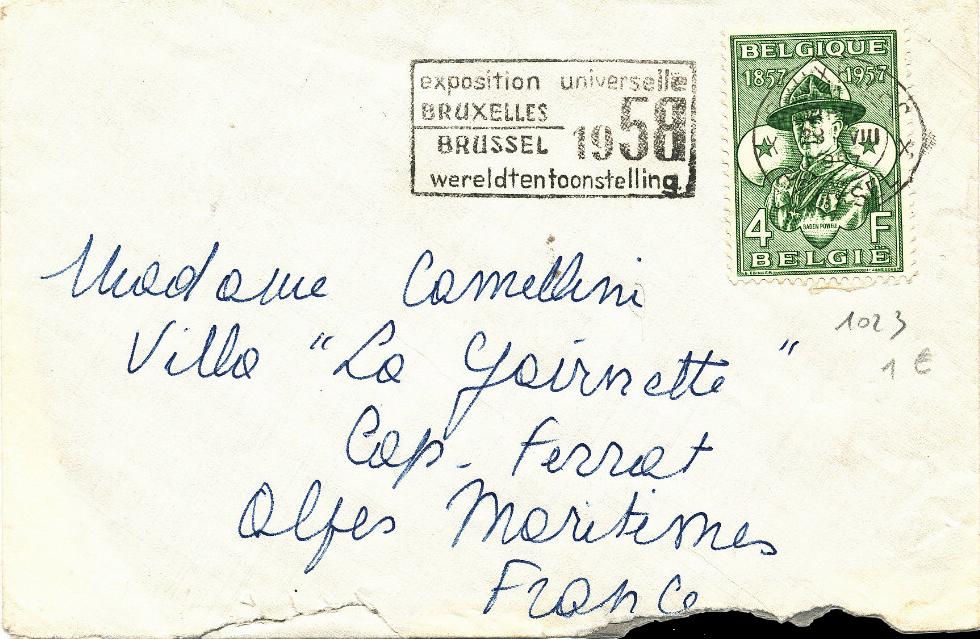 exposition universelle
BRUXELLES
BRUSSEL 1958
wereldtentoonstelling
BELGIQUE
1857 1957
VIII
BADEN POWELL
4 F
BELGIË
Madame Camellini
Villa "La "
Cap. Ferrat
Alpes Maritimes
France
1023
1 €